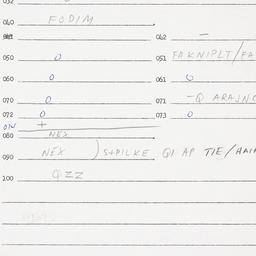 032
040 FODIM
041 042 –
050 0 051 FAKNIPLT/FA
060 0 061 0
070 0 071 –Q ARAJNC
072 0 073 0
074 +
080 NEX
090 NEX ) S+PILKE QI AP TIE/HAIA
100 QZZ